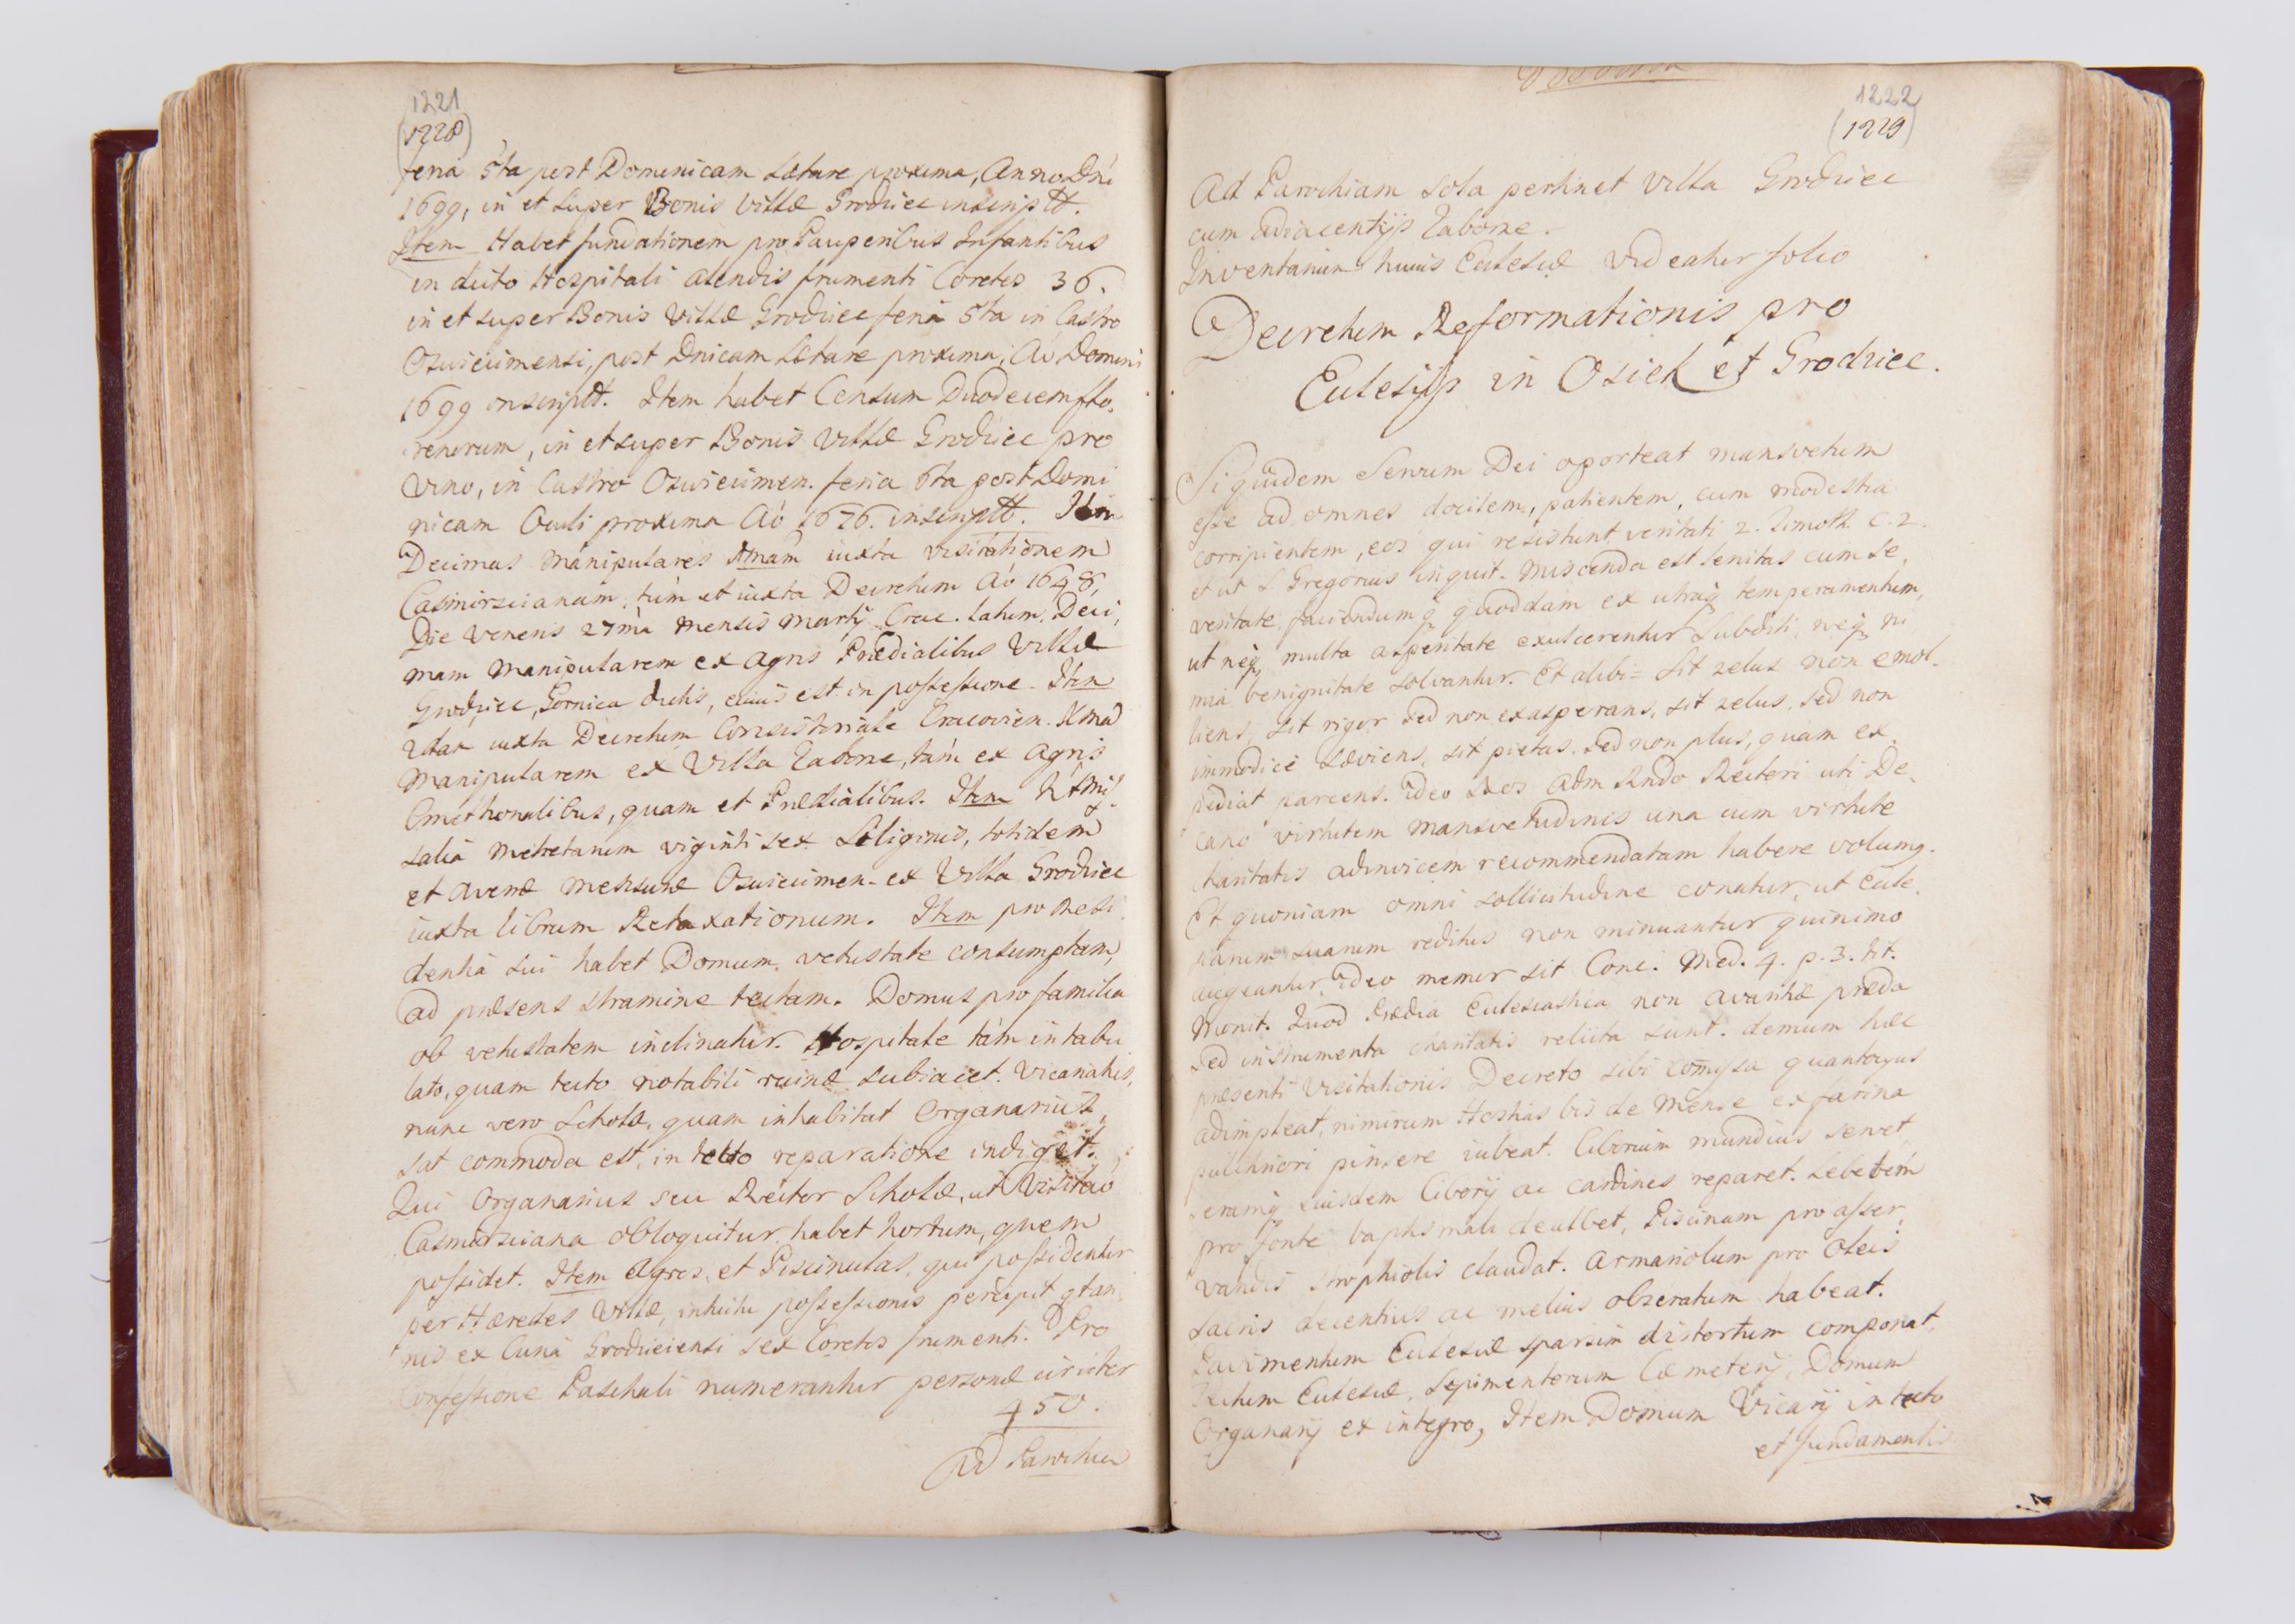 1221
(1228)
feria 5ta post Dominicam Lætare proxima, Anno Dni
1699, in et super Bonis Villæ Grodziec inscriptt.
Item Habet fundationem pro Pauperibus Infantibus
in dicto Hospitali alendis frumenti Coretos 36.
in et super Bonis Villæ Grodziec feria 5ta in Castro
Oswiecimensi, post Dnicam Lætare proxima, Ao Domini
1699 inscriptt. Item habet Censum Duodecem flo,
renorum, in et super Bonis Villæ Grodziec pro
Vino, in Castro Oswiecimen. feria 6ta post Domi
nicam Oculi proxima Ao 1676. inscriptt. Item
Decimas Manipulares Xmam iuxta visitationem
Casimirscianam, tum et iuxta Decretum Ao 1648,
Die Veneris 27ma Mensis Martij Crac. latum, Deci,
mam Manipularem ex Agris Prædialibus Villæ
Grodziec, Gornica dictis, cuius est in possessione. Item
2dam iuxta Decretum Consistoriale Cracovien. Xmam
Manipularem ex Villa Zaborze, tam ex Agris
Cmethonalibus, quam et Prædialibus. Item
salia Metretarum viginti sex Siliginis, totidem
et Avenæ Mensuræ Oswiecimen. ex Villa Grodziec
iuxta librum Retaxationum. Item pro Resi
dentia sui habet Domum, vetustate consumptam,
ad præsens stramine tectam. Domus pro familia
ob vetustatem inclinatur. Hospitale tam in tabu
lato, quam tecto notabili ruinæ subiacet. Vicarialis,
nunc vero Scholæ, quam inhabitat Organarius,
sat commoda est, in tecto reparatione indiget.
Qui Organarius seu Rector Scholæ, ut Visitao
Casimirsciana obloquitur, habet hortum, quem
possidet. Item Agros, et Piscinulas, qui possidentur
per Hæredes Villæ, intuitu possessionis percipit qtan,
nis ex Curia Grodzieciensi sex Coretos frumenti. Pro
Confessione Paschali numerantur personæ circiter
450.
Ad Parochia
1222
(1229)
Ad Parochiam sola pertinet Villa Grodziec
cum adiacentijs Zaborze.
Inventarium huius Ecclesiæ videatur folio
Decretum Reformationis pro
Ecclesijs in Osiek et Grodziec.
Siquidem Servum Dei oporteat mansvetum
esse ad omnes docilem, patientem, cum modestia
corripientem, eos qui resistunt veritati 2. Timoth. C. 2.
et ut S Gregorius inquit. Miscenda est lenitas cum se,
veritate, faciendumq quoddam ex utraq temperamentum,
ut neq multa asperitate exulcerentur Subditi, neq ni
mia benignitate solvantur. Et alibi = Sit zelus non emol,
liens, sit rigor sed non exasperans, sit zelus, sed non
immodice sæviens, sit pietas. sed non plus, quam ex,
pediat parcens. ideo Adm Rndo Rectori uti De,
cano virtutem Mansvetudinis una cum virtute
charitatis adinvicem recommendatam habere volumq.
Et quoniam omni sollicitudine conatur, ut Eccle,
siarum suarum reditus non minuantur quinimo
augeantur, ideo memor sit Conc. Med. 4. p. 3. tit.
Monit. Quod Prædia Ecclesiastica non avaritiæ præda
sed instrumenta charitatis relicta sunt. demum hæc
præsenti Visitationis Decreto sibi comissa quantocyus
adimpleat, nimirum Hostias bis de Mense ex farina
pulchriori pinsere iubeat. Ciborium mundius servet,
seramq eiusdem Ciborij ac cardines reparet. Lebetem
pro fonte baptismali dealbet, Piscinam pro asser,
vandis strophiolis claudat. Armariolum pro Oleis
Sacris decentius ac melius obseratum habeat.
Pavimentum Ecclesiæ sparsim distortum componat,
Tectum Ecclesiæ, Sepimentorum Cæmeterij, Domum
Organarij ex integro, Item Domum Vicarij in tecto
et fundamentis